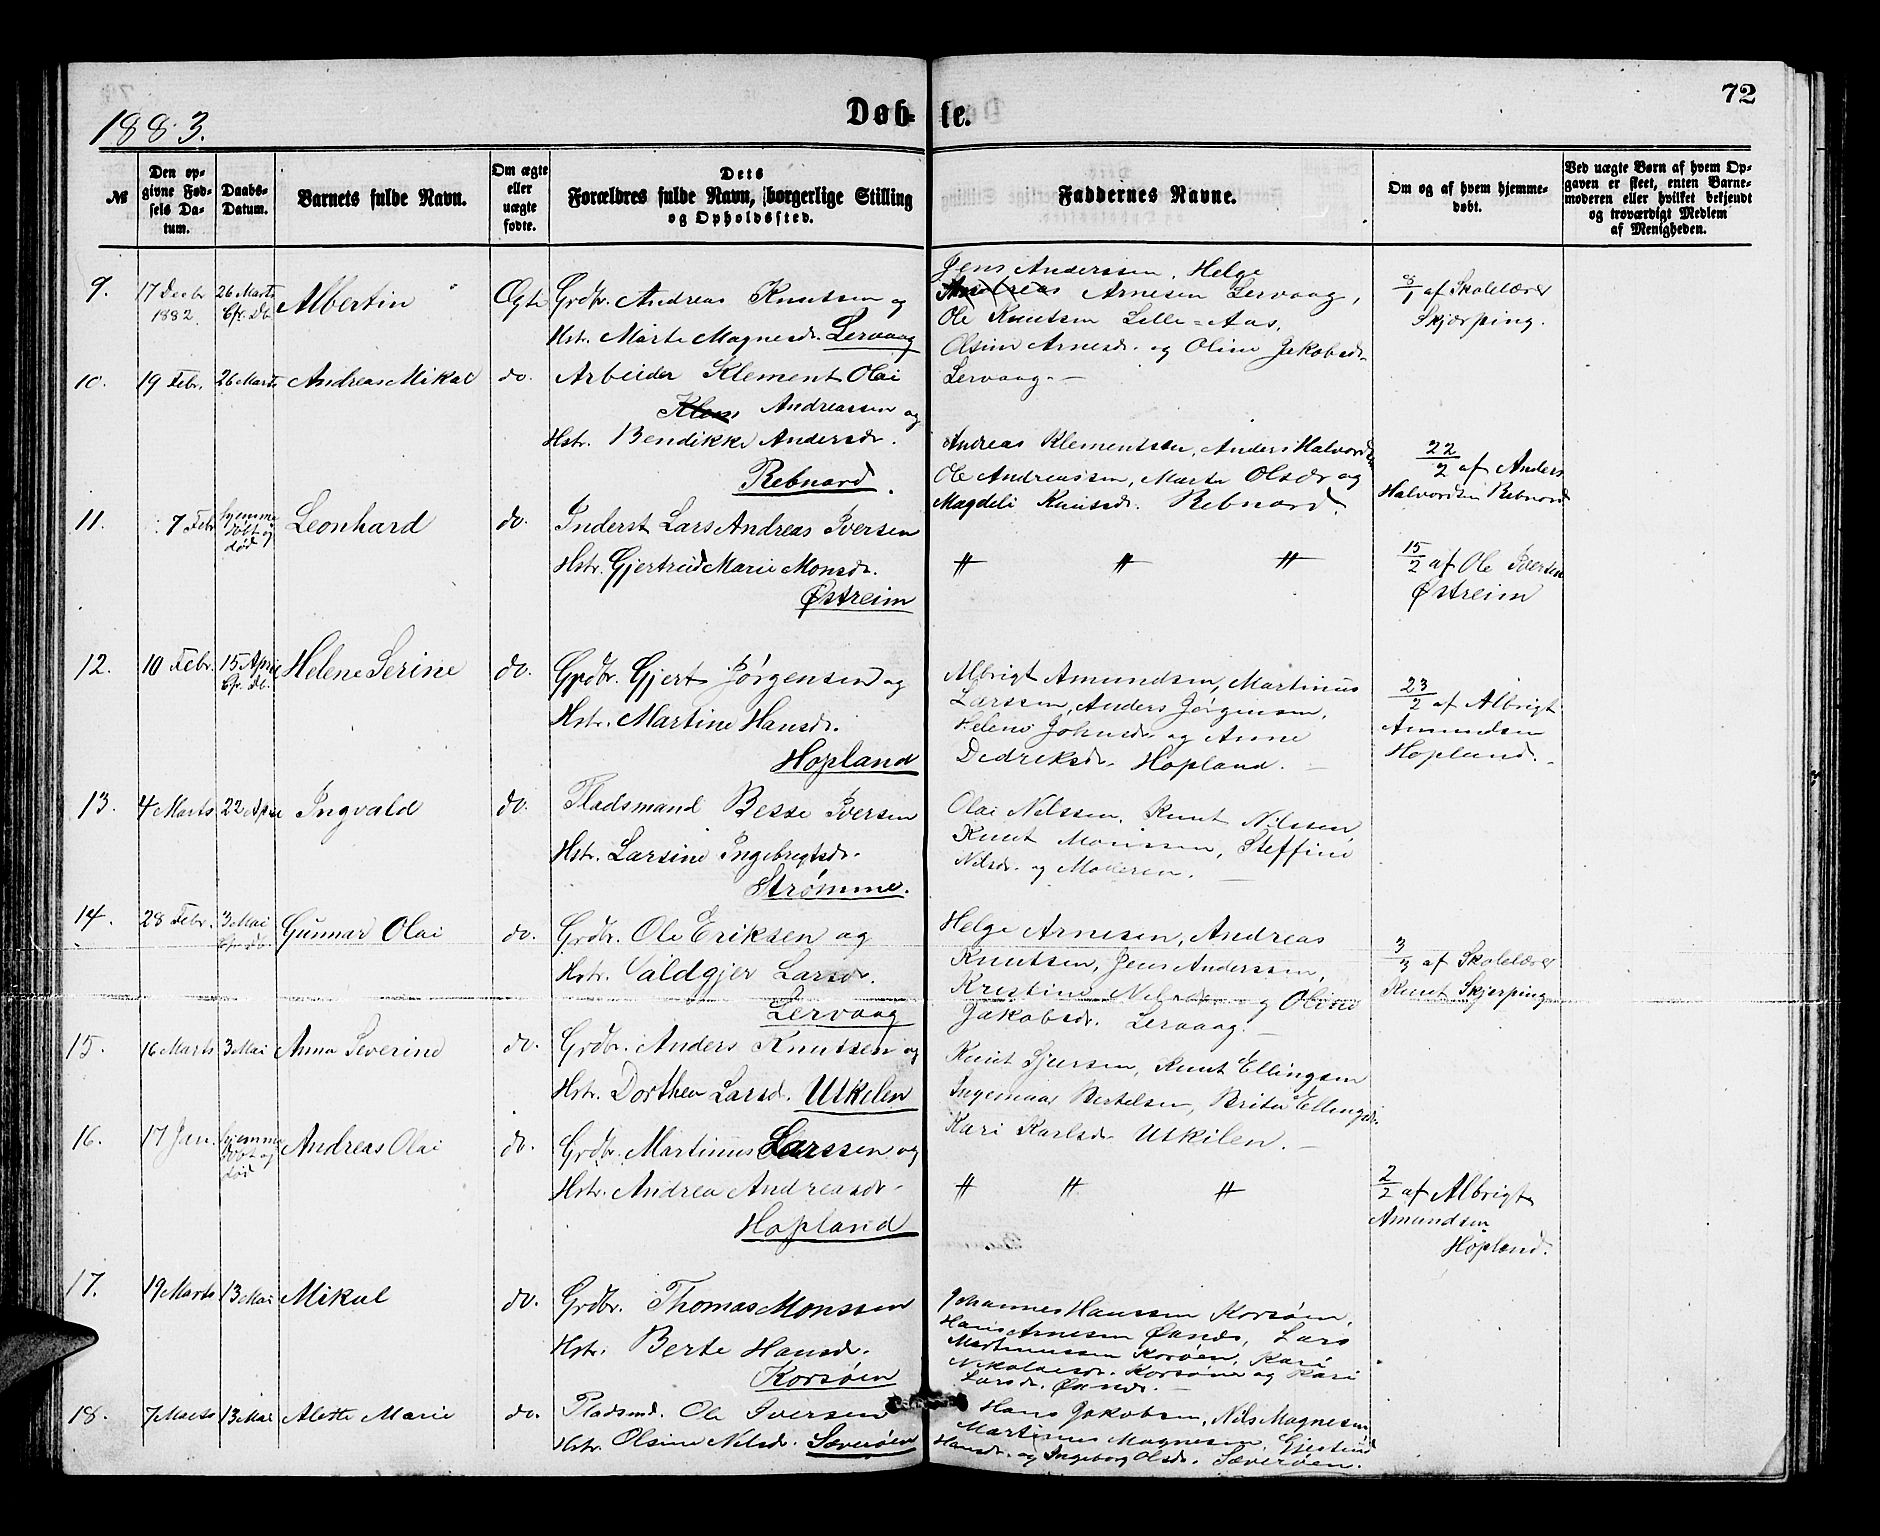 72
1883.
Døbte.
№
Den opgivne Fødsels Datum.
Daabs-Datum.
Barnets fulde Navn.
Om ægte eller uægte fødte.
Dets Forældres fulde Navn, borgerlige Stilling og Opholdssted.
Faddernes Navne.
Om og af hvem hjemmedøbt.
Ved uægte Børn af hvem Opgaven er skeet, enten Barnemoderen eller hvilket bekjendt og troværdigt Medlem af Menigheden.
9. 17 Decbr 1882. 26 Marts Albertin Ægte Grdbr. Andreas Knutsen og
Hstr. Marte Magnesdr. Lervaag
Jens Anderssen, Helge
Andreas Arnesen Lervaag,
Ole Knutsen Lille-Aas,
Olsine Arnesdr. og Oline Jakobsdr.
Lervaag.
8/1 af Skolelærer
Skjerping.
10. 19 Febr. 26 Marts Andreas Mikal do. Arbeider Klement Olai
Andreassen og
Hstr. Bendikke Andersdr.
Rebnord.
Andreas Klementsen, Anders Halvords
Ole Andreassen, Marta Olsdr og
Magdeli Knutsdr. Rebnord.
22/2 af Anders
Halvordsen Rebnord
11. 7 Febr. hjemmedøbt og død Leonhard do. Inderst Lars Andreas Iversen
Hstr. Gjertrud Marie Monsdr.
Østreim
〃 〃 〃
15/2 af Ole Iversen
Østreim
12. 10 Febr. 15 April Helene Serine do. Grdbr. Gjert Jørgensen og
Hstr. Martine Hansdr.
Hopland
Albrigt Amundsen, Martinus
Larssen, Anders Jørgensen,
Helene Johnsdr. og Anne
Dedreksdr. Hopland.
23/2 af Albrigt
Amundsen
Hopland.
13. 4 Marts 22 April Ingvald do. Pladsmand Besse Iversen
Hstr. Larsine Ingebregtsdr.
Strømme.
Olai Nilssen, Knut Nilssen,
Knut Monssen, Steffine
Nilsdr. og Moderen.
14. 28 Febr. 3 Mai Gunnar Olai do. Grdbr. Ole Eriksen og
Hstr. Valdgjer Larsdr.
Lervaag
Helge Arnesen, Andreas
Knutsen, Jens Anderssen,
Kristine Nilsdr. og Oline
Jakobsdr. Lervaag.
3/3 af Skolelærer
Knut Skjerping
15. 16 Marts 3 Mai Anna Severine do. Grdbr. Anders Knutsen og
Hstr. Dorthea Larsd. Utkilen
Knut Sjursen, Knut Ellingsen
Ingemaar Bertelsen, Brita Ellingsdr.
Kari Karlsdr. Utkilen.
16. 17 Jan. hjemmedøbt og død Andreas Olai do. Grdbr. Martinus Larssen og
Hstr. Andrea Andreasdr.
Hopland
〃 〃 〃
2/2 af Albrigt
Amundsen
Hopland.
17. 19 Marts 13 Mai Mikal do. Grdbr. Thomas Monssen
Hstr. Berte Hansdr.
Korsøen
Johannes Hanssen Korsøen,
Hans Arnesen Øxnes, Lars
Martinussen Korsøen, Kari
Nikolaisdr. Korsøen og Kari
Larsdr.
18. 7 Marts 13 Mai Alette Marie do. Pladsmd. Ole Iversen
Hstr. Olsine Nilsdr. Sæverøen
Hans Jakobsen, Nils Magnesen
Martinus Magnesen, Gjertrud
Hansdr. og Ingeborg Olsdr. Sæverøen.